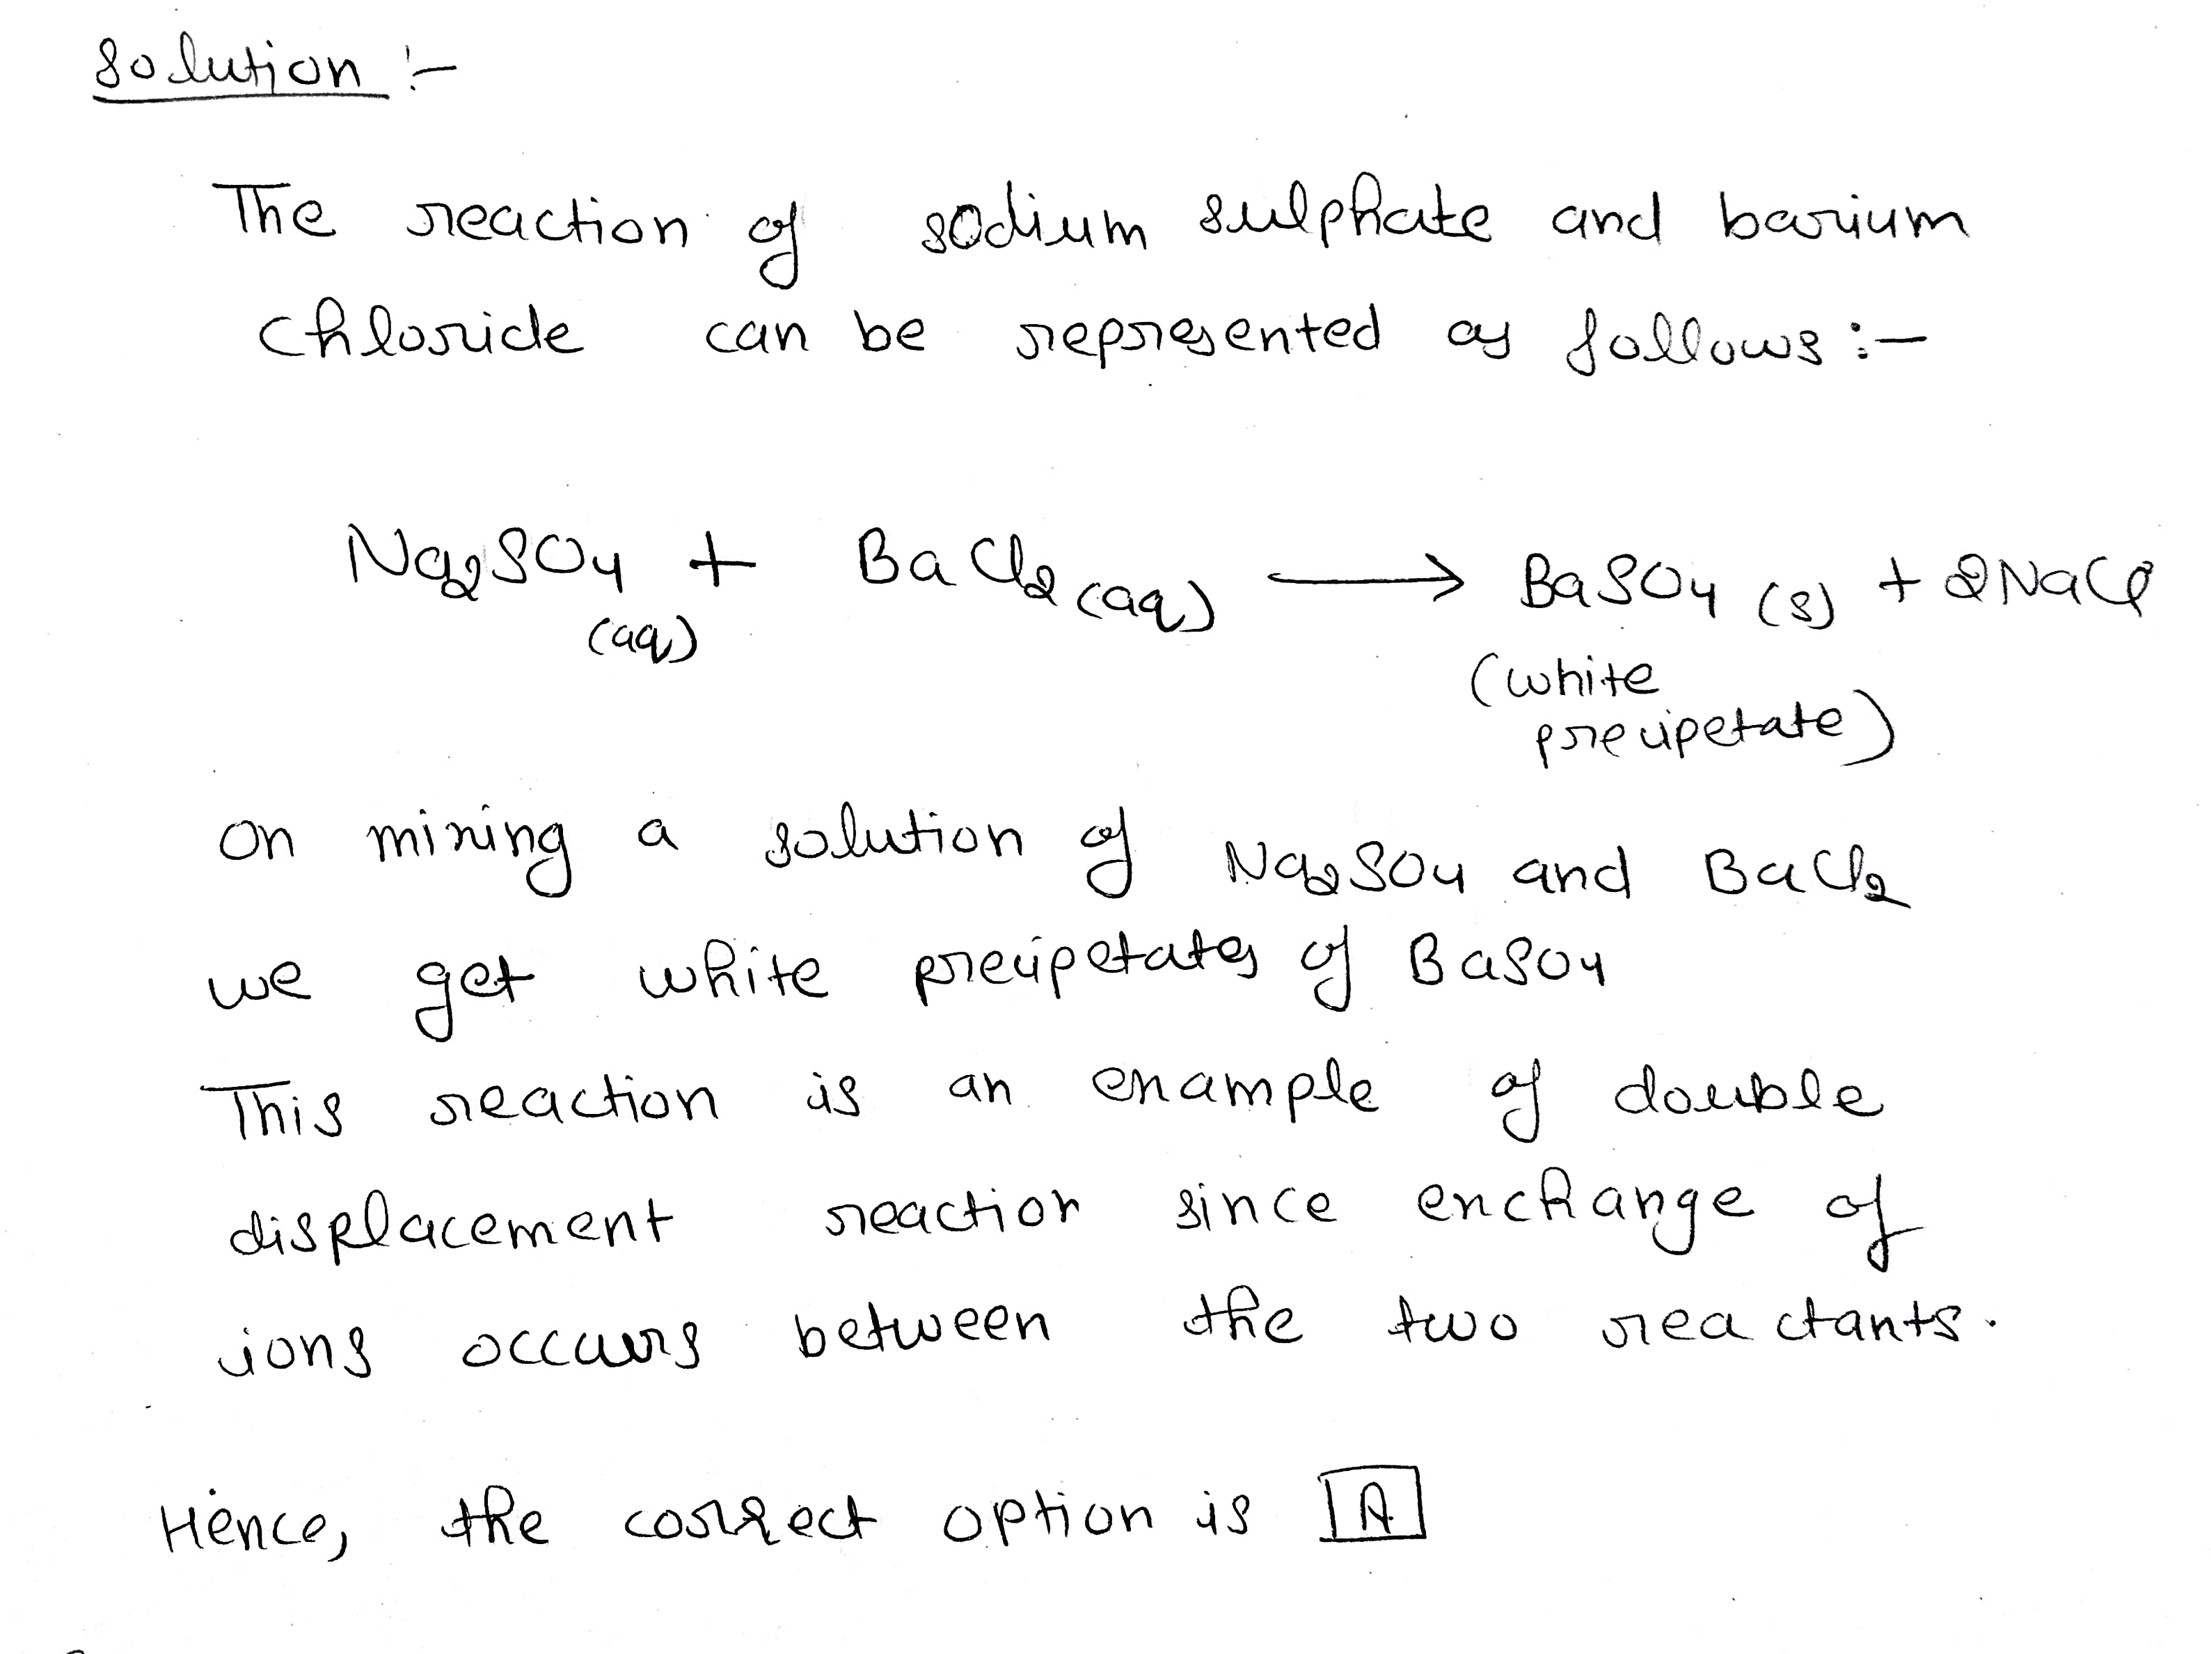 Solution :-
The reaction of sodium sulphate and barium
chloride can be represented as follows :-
Na2SO4 (aq) + BaCl2 (aq) ⟶ BaSO4 (s) + 2NaCl
(white
precipetate)
on mixing a solution of Na2SO4 and BaCl2
we get white precipetates of BaSO4
This reaction is an example of double
displacement reaction since exchange of
ions occurs between the two reactants.
Hence, the correct option is A